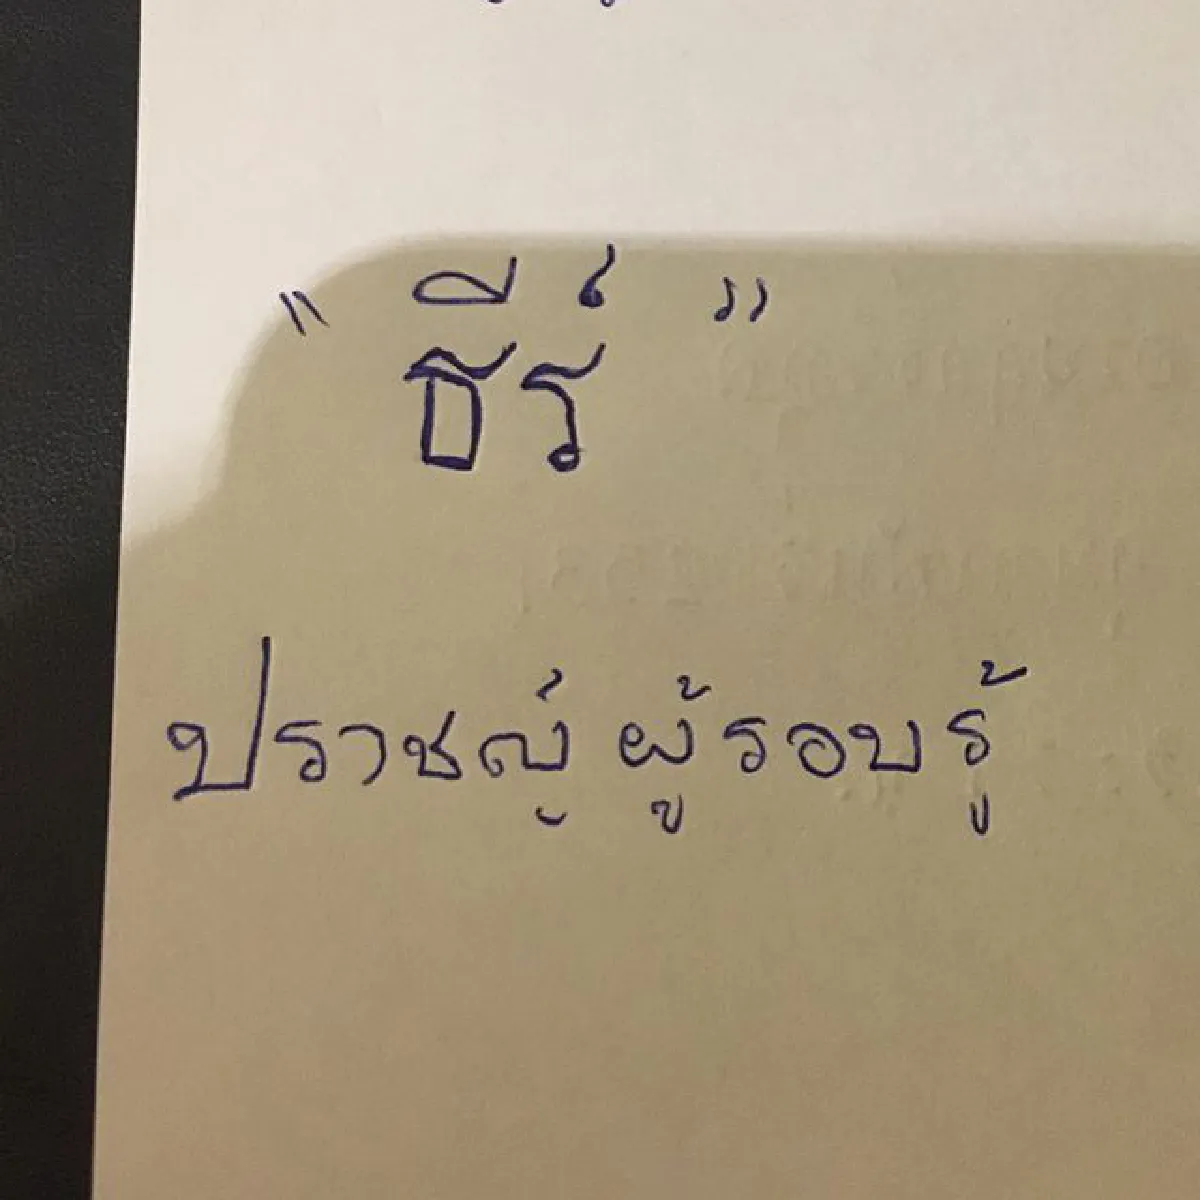 "ธีร์"
ปราชญ์ ผู้รอบรู้